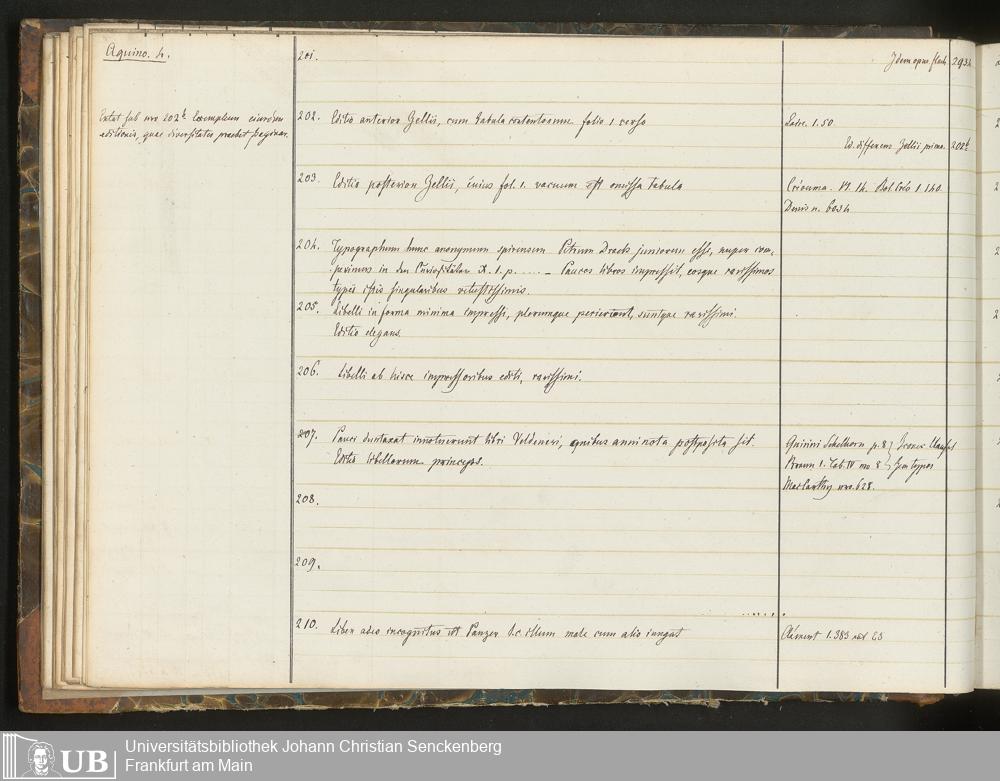 Aquino. h.
201.
Idem opus flach. 293h
Extat sub nro 202b Exemplum eiusdem
editionis, quae diversitates praebet paginar.
202. Editio anterior Zellii, cum tabula contentorum folio 1 verso
Laire. 1.50.
Ed. differens Zellii prima. 202b
203. Editio posterior Zellii, cuius fol. 1. vacuum est omissa tabula
Crevenna. Bol Crév 1 140.
Denis n. 6034
204. Typographum hunc anonymum spirensem Petrum Drach juniorem esse, nuper com-
perimus in den Curiositäten X. 1. p. ..... – Paucos libros impressit, eosque rarissimos
typis istis singularibus vetustissimis.
205. Libelli in forma minima impressi, plerumque perierunt, suntque rarissimi.
Editio elegans.
206. Libelli ab hisce impressoribus editi, rarissimi.
207. Pauci duntaxat innotuerunt libri Veldeneri, quibus anni nota postposita sit.
Editio libellorum princeps.
Quirini Schelhorn p. 8
Braun 1. tab. IV no 8
MacCarthy nro. 628.
208.
209.
210. Liber adeo incognitus ut Panzer l.c. illum male cum alio iungat
Clément 1.383
Universitätsbibliothek Johann Christian Senckenberg
UB Frankfurt am Main